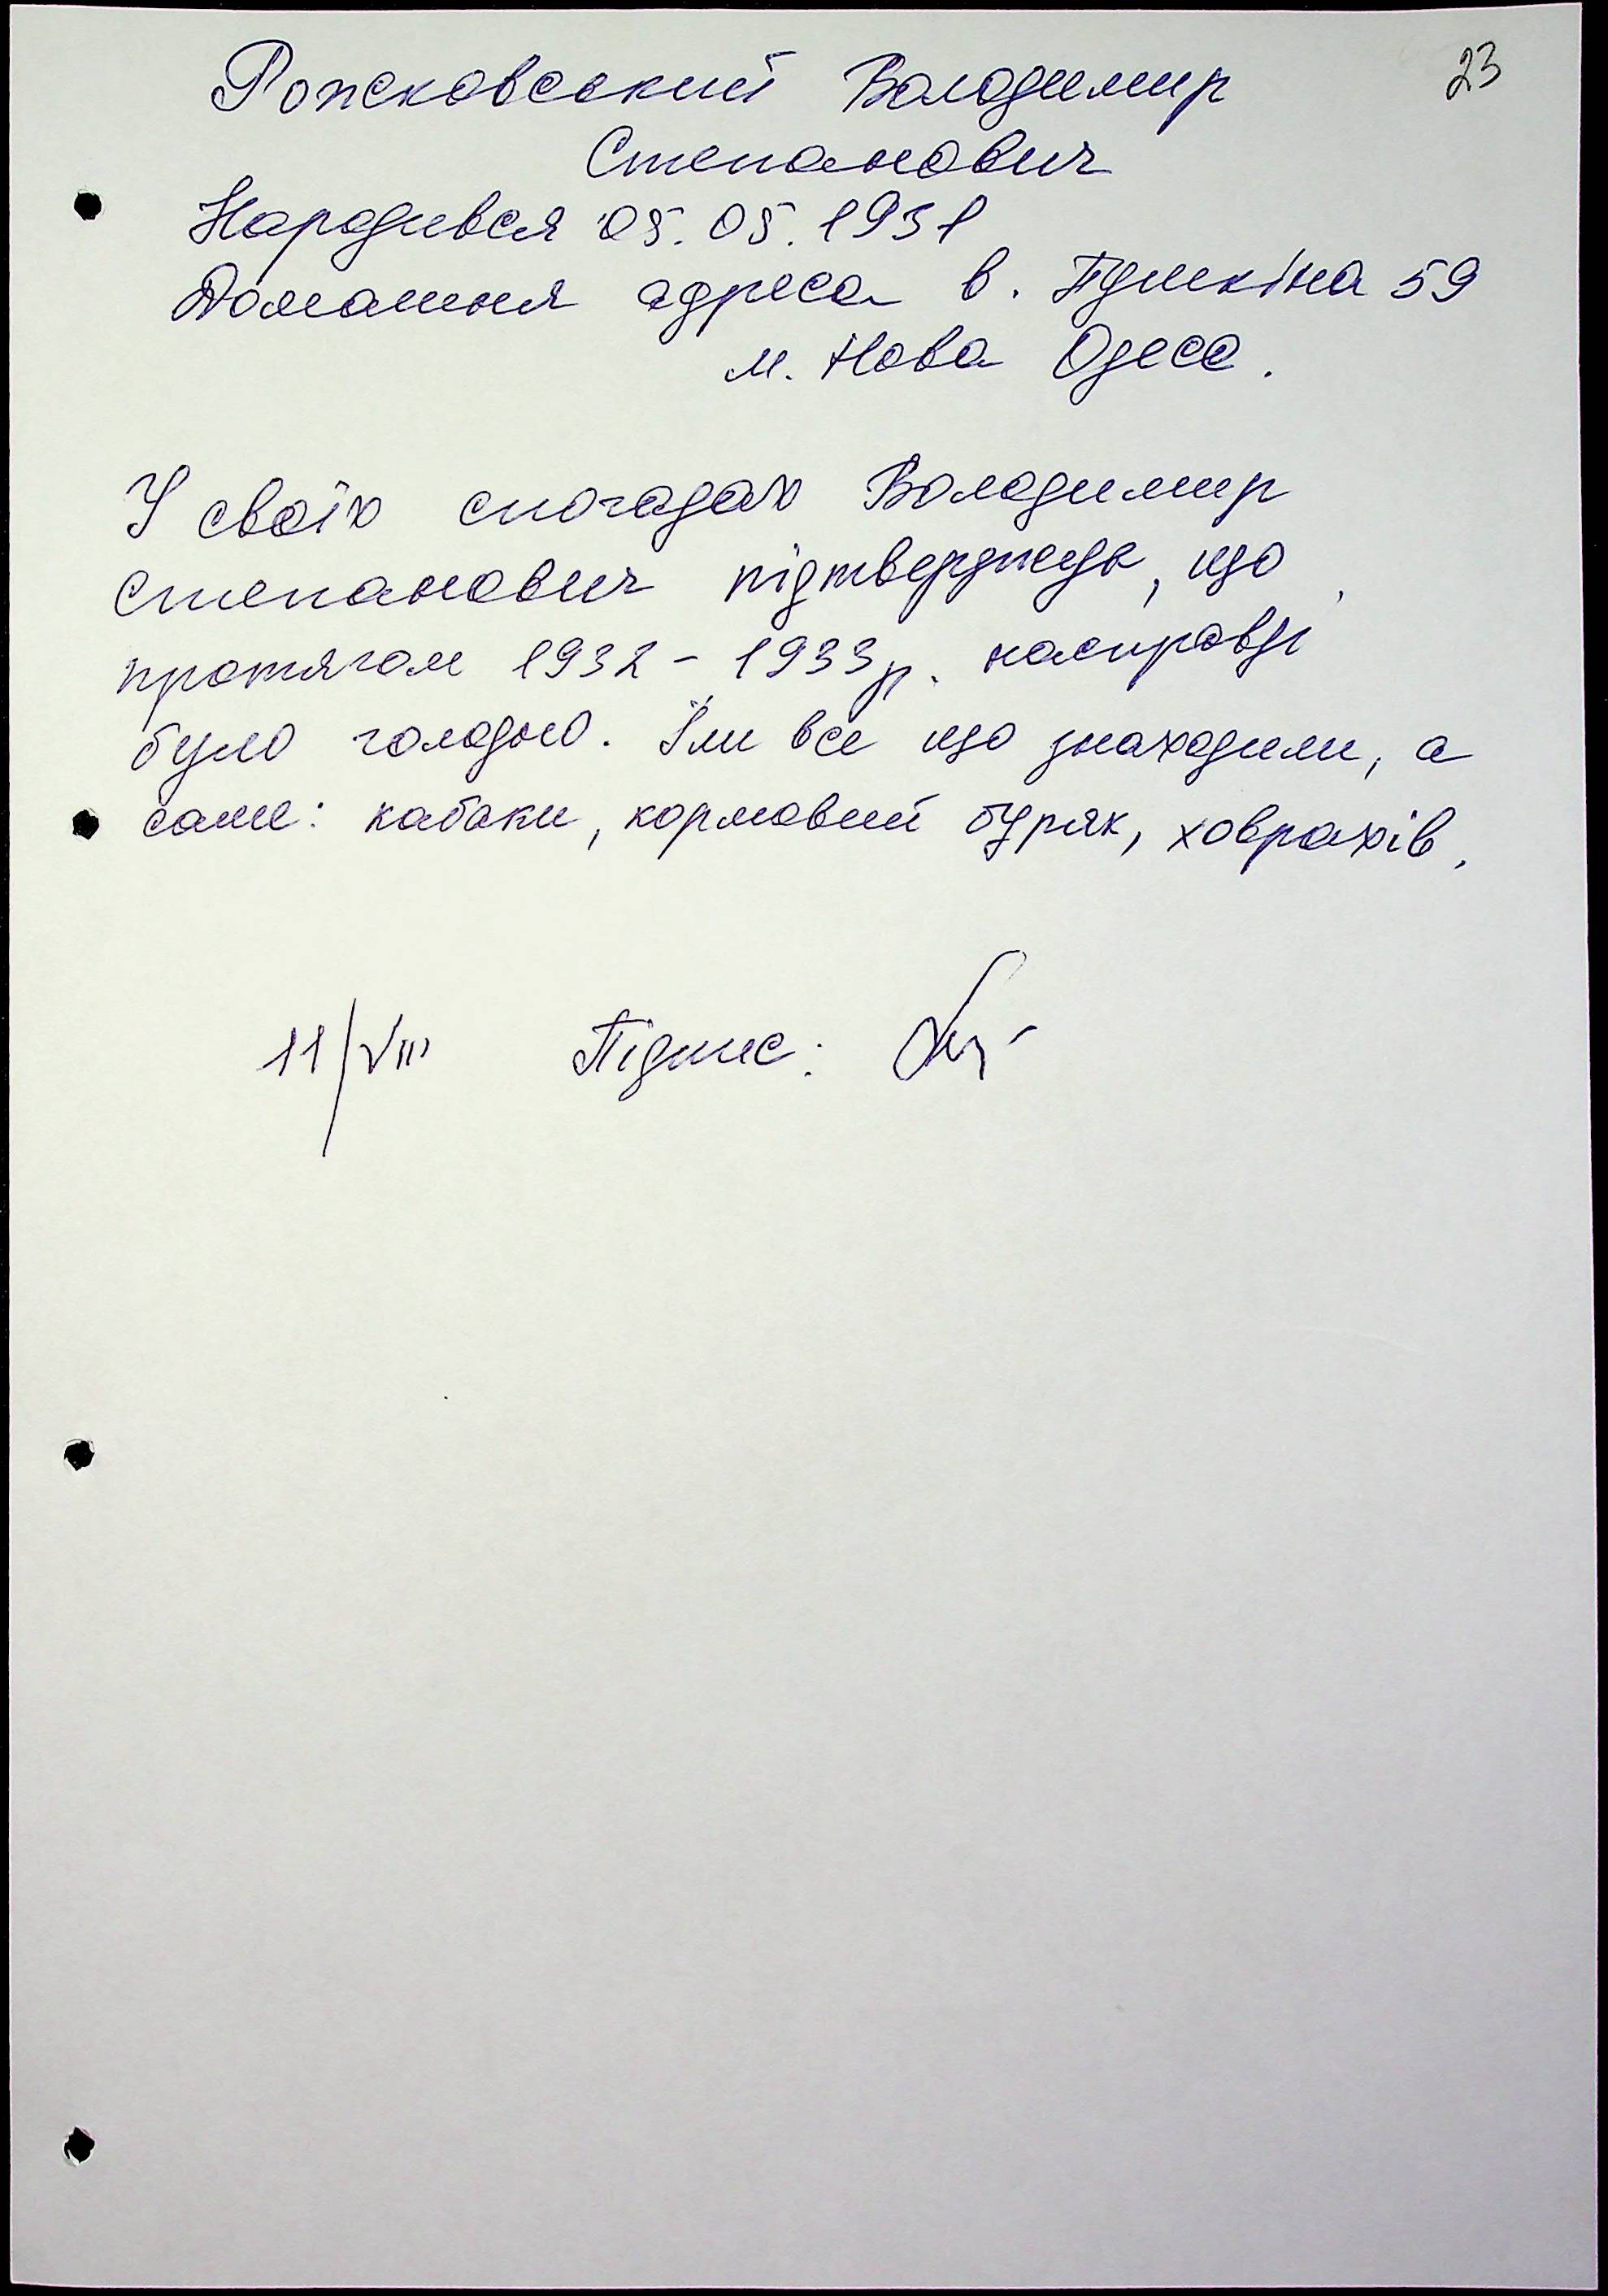 23
Рожковський Володимир
Степанович
Народився 05.05.1931
Домашня адреса в. Пушкіна 59
м. Нова Одеса.
У своїх спогадах Володимир
Степанович підтверджує, що
протягом 1932 - 1933р. насправді
було голодно. Їли все що знаходили, а
саме: кабаки, кормовий буряк, ховрахів.
11/VIII Підпис: